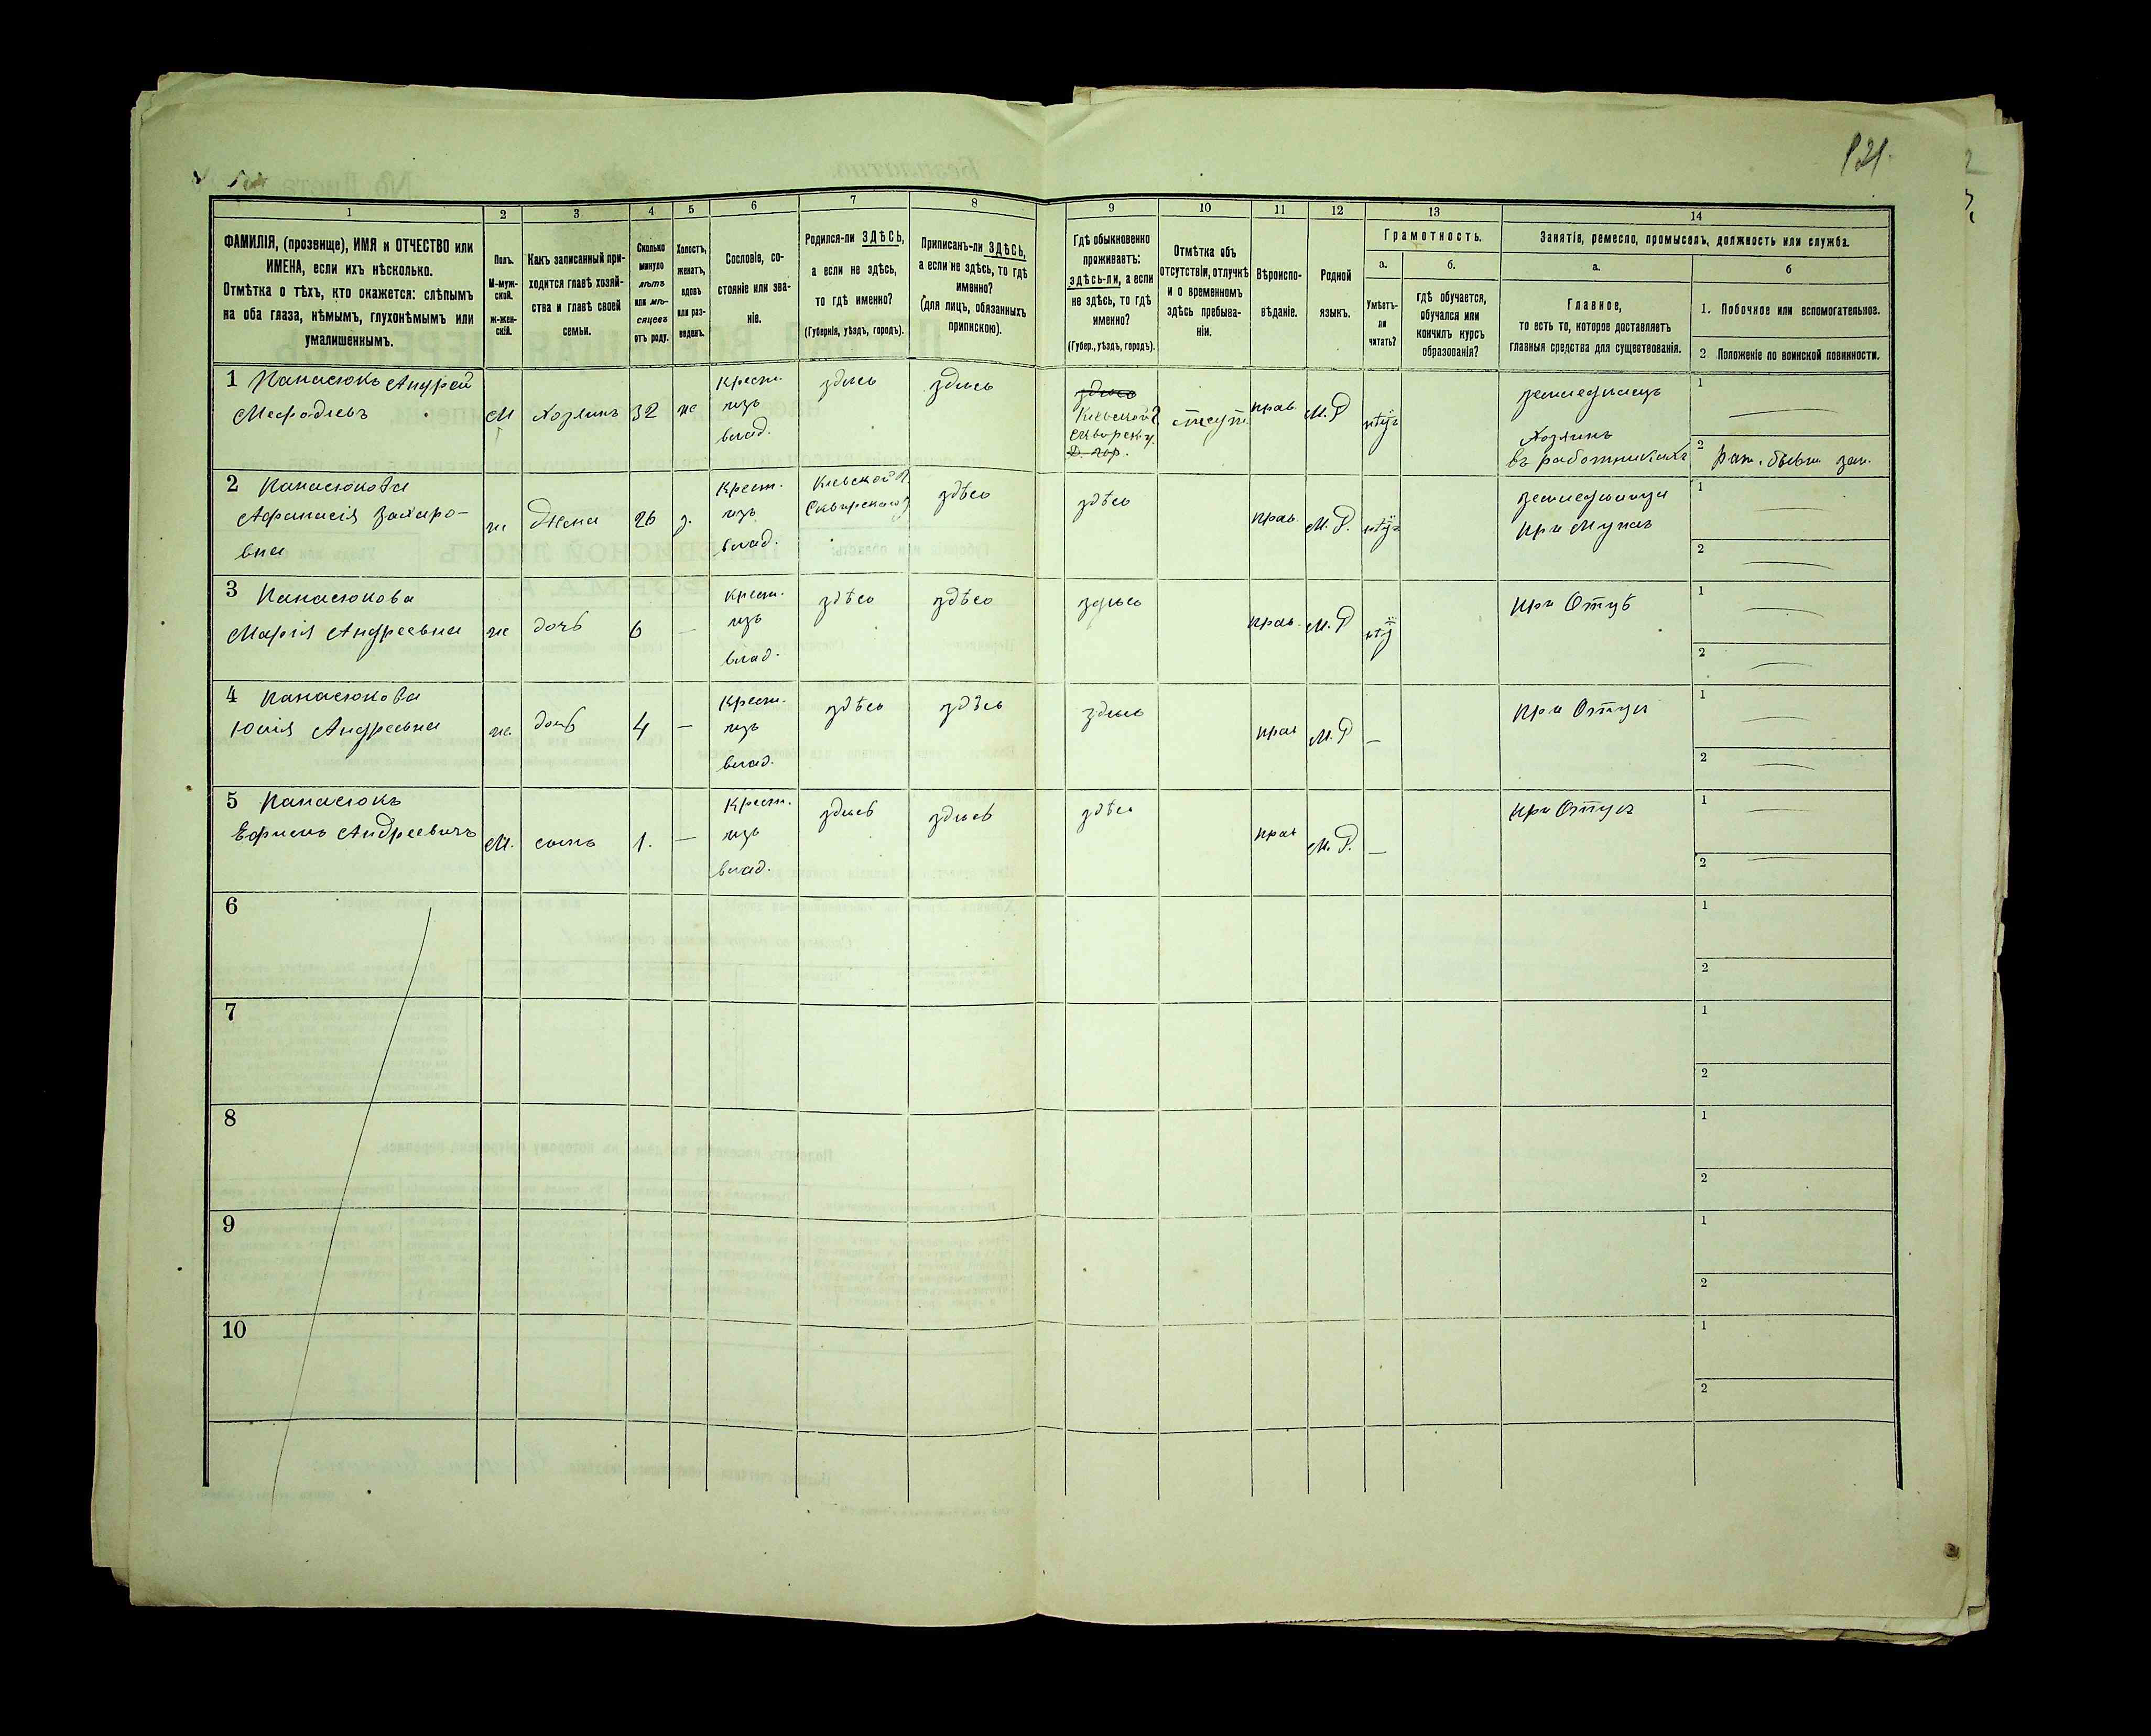 121.
1
2
3
4
5
6
7
8
9
10
11
12
13
14
ФАМИЛІЯ, (прозвище), ИМЯ и ОТЧЕСТВО или
ИМЕНА, если ихъ нѣсколько.
Отмѣтка о тѣхъ, кто окажется: слѣпымъ
на оба глаза, нѣмымъ, глухонѣмымъ или
умалишеннымъ.
Полъ.
М-муж-
ской.
ж-жен-
скій.
Какъ записанный при-
ходится главѣ хозяй-
ства и главѣ своей
семьи.
Сколько
минуло
лѣтъ
или мѣ-
сяцевъ
отъ роду.
Холостъ,
женатъ,
вдовъ
или раз-
веденъ.
Сословіе, со-
стояніе или зва-
ніе.
Родился-ли ЗДѢСЬ,
а если не здѣсь,
то гдѣ именно?
(Губернія, уѣздъ, городъ).
Приписанъ-ли ЗДѢСЬ,
а если не здѣсь, то гдѣ
именно?
(Для лицъ, обязанныхъ
припискою).
Гдѣ обыкновенно
проживаетъ:
здѣсь-ли, а если
не здѣсь, то гдѣ
именно?
(Губер., уѣздъ, городъ).
Отмѣтка объ
отсутствіи, отлучкѣ
и о временномъ
здѣсь пребыва-
ніи.
Вѣроиспо-
вѣданіе.
Родной
языкъ.
Грамотность.
а.
Умѣетъ-
ли
читать?
б.
гдѣ обучается,
обучался или
кончилъ курсъ
образованія?
Занятіе, ремесло, промыселъ, должность или служба.
а.
Главное,
то есть то, которое доставляетъ
главныя средства для существованія.
б
1. Побочное или вспомогательное.
2 Положеніе по воинской повинности.
1 Панасюкъ Андрей
Мефодіевъ
М
хозяинъ
32
же
Крест.
изъ
влад.
здѣсь
здѣсь
здѣсь
Кіевской г
Сквирск у.
отсут.
прав.
М. Р
нѣтъ
земледѣлецъ
Хозяинъ
въ работникахъ
1
2
2 Панасюкова
Афанасія Захаро-
вна
ж
Жена
26
з.
Крест.
изъ
влад.
Кіевской г
Сквирского у
здѣсь
здѣсь
прав.
М. Р.
нѣтъ
земледѣлица
при Мужѣ
1
2
3 Панасюкова
Марія Андреевна
ж
дочь
6
—
Крест.
изъ
влад.
здѣсь
здѣсь
здѣсь
прав.
М. Р
нѣтъ
при Отцѣ
1
2
4 Панасюкова
Юлія Андреевна
ж
дочь
4
—
Крест.
изъ
влад.
здѣсь
здѣсь
здѣсь
прав
М. Р
—
при Отцѣ
1
2
5 Панасюкъ
Ефимъ Андреевичъ
М.
сынъ
1.
—
Крест.
изъ
влад.
здѣсь
здѣсь
здѣсь
прав
М. Р.
—
при Отцѣ
1
2
6
1
2
7
1
2
8
1
2
9
1
2
10
1
2